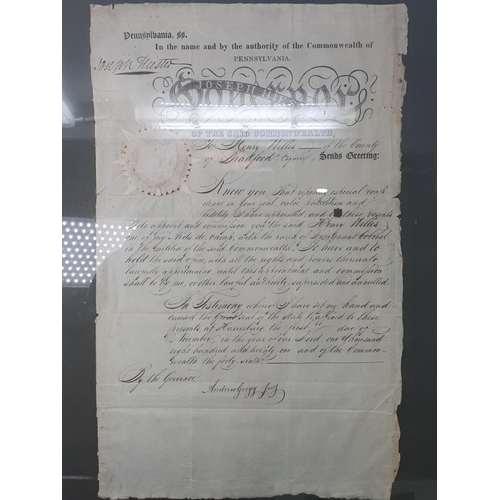 Pennsylvania, ss.
In the name and by the authority of the Commonwealth of
PENNSYLVANIA.
Joseph Hiester
JOSEPH
Governor
OF THE SAID COMMONWEALTH,
To Henry Welles of the County
of Bradford Esquire, Sends Greeting:
Know you, That reposing especial confi
dence in your zeal, valor, patriotism and
fidelity, I have appointed, and by these presents
I do appoint and commission you the said Henry Welles
one of my Aids de Camp, with the rank of Lieutenant Colonel
in the Militia of the said Commonwealth. To have and to
hold the said office, with all the rights and powers thereunto
lawfully appertaining until this appointment and commission
shall be by me, or other lawful authority, superseded and annulled.
In Testimony where I have set my hand and
caused the Great Seal of the State to be affixed to these
presents at Harrisburg the first day of
November in the year of our Lord one thousand
eight hundred and twenty one and of the Common-
wealth the forty sixth
By the Governor
Andrew Gregg Secy